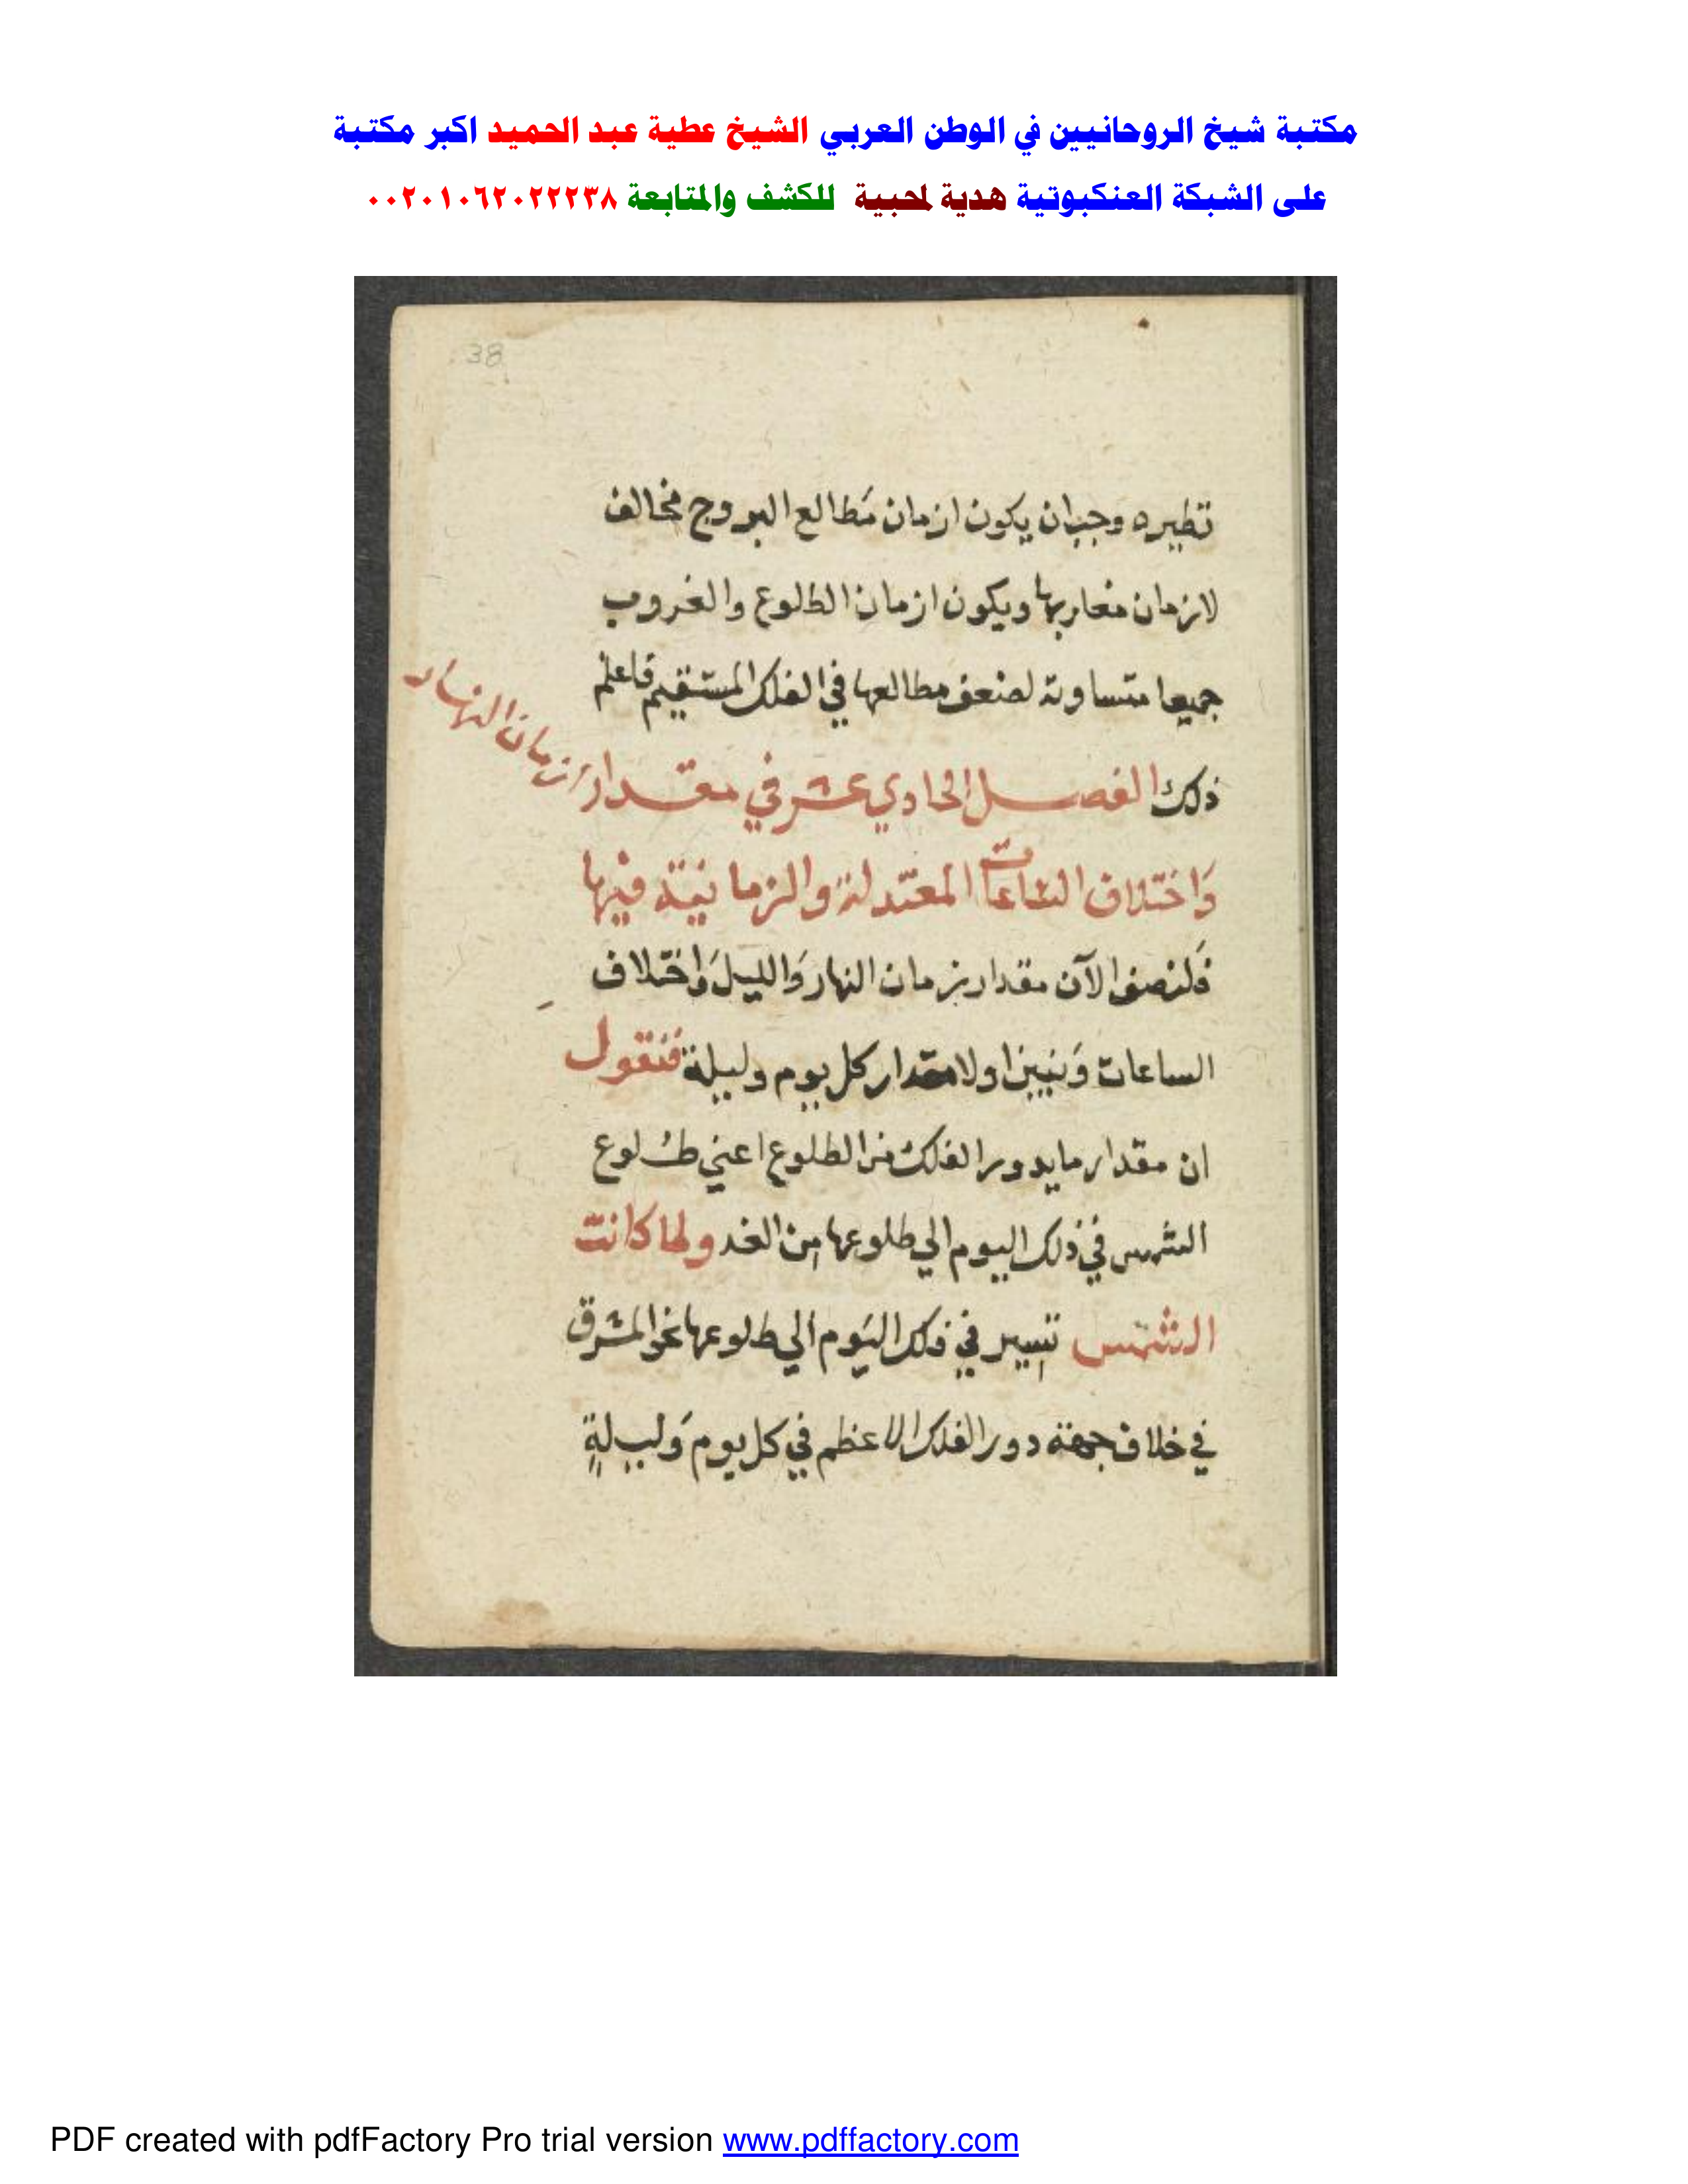 مكتبة شيخ الروحانيين في الوطن العربي الشيخ عطية عبد الحميد اكبر مكتبة
على الشبكة العنكبوتية هدية لمحبية للكشف والمتابعة ٠٠٢٠١٠٦٢٠٢٢٢٣٨
38
نظيره وجب ان يكون ازمان مَطالع البروج مخالف
لازمان مغاربها ويكون ازمان الطلوع والغروب
جميعا متساوية لضعف مطالعها في الفلك المستقيم فاعلم
ذلك الفصل الحادي عشر في مقدار ازمان النهار
وَاختلاف الساعات المعتدلة والزمانية فيها
فَلنصف الآن مقدار زمان النهار وَالليل وَاختلاف
الساعات وَنبين اولا مقدار كل يوم وليلة فنقول
ان مقدار ما يدور الفلك من الطلوع اعني طلوع
الشمس في ذلك اليوم الي طلوعها من الغد ولما كانت
الشمس تسير في ذلك اليَوم الي طلوعها نحو المشرق
في خلاف جهة دور الفلك الاعظم في كل يوم وَليلةٍ
PDF created with pdfFactory Pro trial version www.pdffactory.com